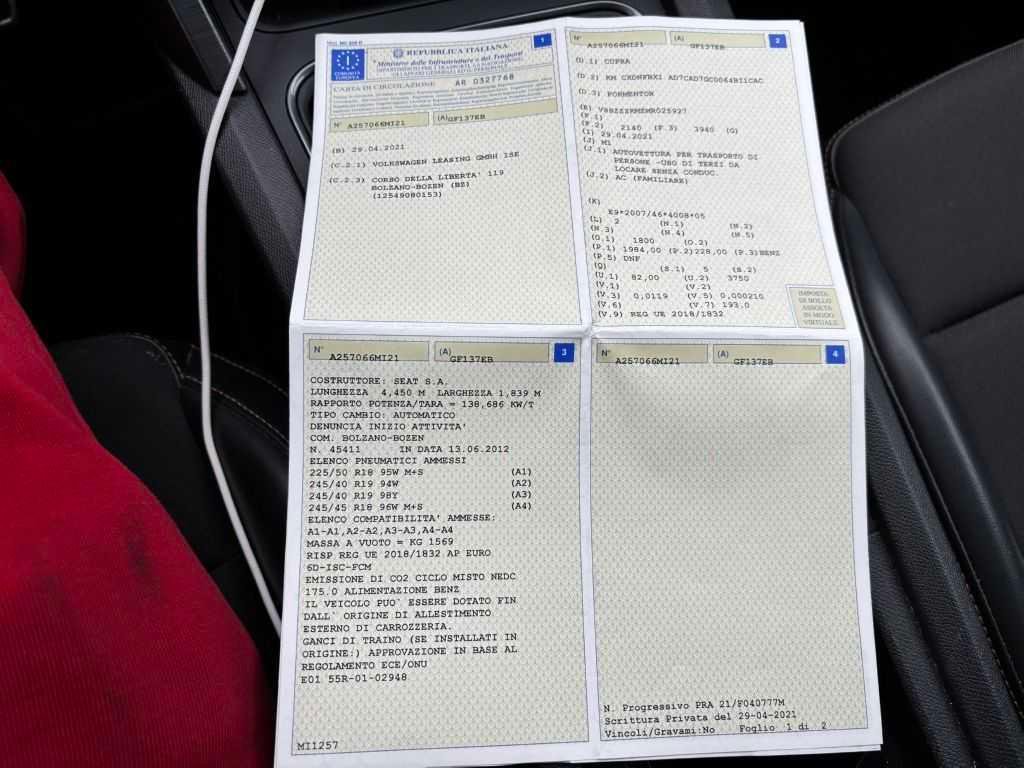 1
REPUBBLICA ITALIANA
Ministero delle Infrastrutture e dei Trasporti
DIPARTIMENTO PER I TRASPORTI, LA NAVIGAZIONE
COMUNITÀ EUROPEA
I
CARTA DI CIRCOLAZIONE AR 0327768
N° A257066MI21 (A) GF137EB
(B) 29.04.2021
(C.2.1) VOLKSWAGEN LEASING GMBH ISE
(C.2.3) CORSO DELLA LIBERTA' 119
BOLZANO-BOZEN (BZ)
(12549080153)
N° A257066MI21 (A) GF137EB 2
(D.1) CUPRA
(D.2) KM CXDNFRX1 AD7CAD7GC0064B1ICAC
(D.3) FORMENTOR
(E) VSSZZZKMZMR025927
(F.1)
(F.2) 2140 (F.3) 3940 (G)
(I) 29.04.2021
(J) M1
(J.1) AUTOVETTURA PER TRASPORTO DI
PERSONE -USO DI TERZI DA
LOCARE SENZA CONDUC.
(J.2) AC (FAMILIARE)
(K)
E9*2007/46*4008*05
(L) 2 (N.1) (N.2)
(N.3) (N.4) (N.5)
(O.1) 1800 (O.2)
(P.1) 1984,00 (P.2)228,00 (P.3)BENZ
(P.5) DNF
(Q) (S.1) 5 (S.2)
(U.1) 82,00 (U.2) 3750
(V.1) (V.2)
(V.3) 0,0119 (V.5) 0,000210
(V.6) (V.7) 193,0
(V.9) REG UE 2018/1832
IMPOSTA
DI BOLLO
ASSOLTA
IN MODO
VIRTUALE
N° A257066MI21 (A) GF137EB 3
COSTRUTTORE: SEAT S.A.
LUNGHEZZA 4,450 M LARGHEZZA 1,839 M
RAPPORTO POTENZA/TARA = 138,686 KW/T
TIPO CAMBIO: AUTOMATICO
DENUNCIA INIZIO ATTIVITA'
COM. BOLZANO-BOZEN
N. 45411 IN DATA 13.06.2012
ELENCO PNEUMATICI AMMESSI
225/50 R18 95W M+S (A1)
245/40 R19 94W (A2)
245/40 R19 98Y (A3)
245/45 R18 96W M+S (A4)
ELENCO COMPATIBILITA' AMMESSE:
A1-A1,A2-A2,A3-A3,A4-A4
MASSA A VUOTO = KG 1569
RISP REG UE 2018/1832 AP EURO
6D-ISC-FCM
EMISSIONE DI CO2 CICLO MISTO NEDC
175.0 ALIMENTAZIONE BENZ
IL VEICOLO PUO` ESSERE DOTATO FIN
DALL` ORIGINE DI ALLESTIMENTO
ESTERNO DI CARROZZERIA.
GANCI DI TRAINO (SE INSTALLATI IN
ORIGINE:) APPROVAZIONE IN BASE AL
REGOLAMENTO ECE/ONU
E01 55R-01-02948
MI1257
N° A257066MI21 (A) GF137EB 4
N. Progressivo PRA 21/F040777M
Scrittura Privata del 29-04-2021
Vincoli/Gravami:No Foglio 1 di 2